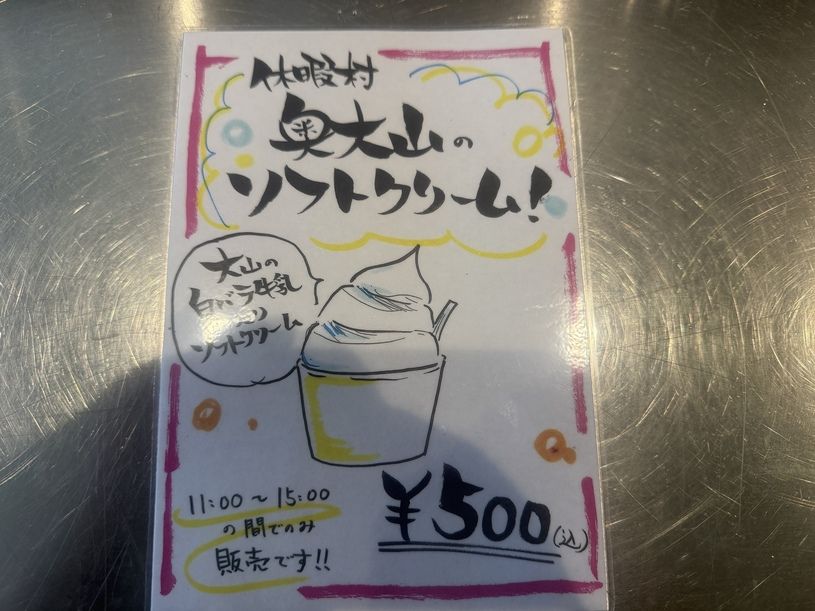 休暇村
奥大山の
ソフトクリーム!
大山の
白バラ牛乳
ソフトクリーム
11:00～15:00
の間でのみ
販売です!!
¥500(込)